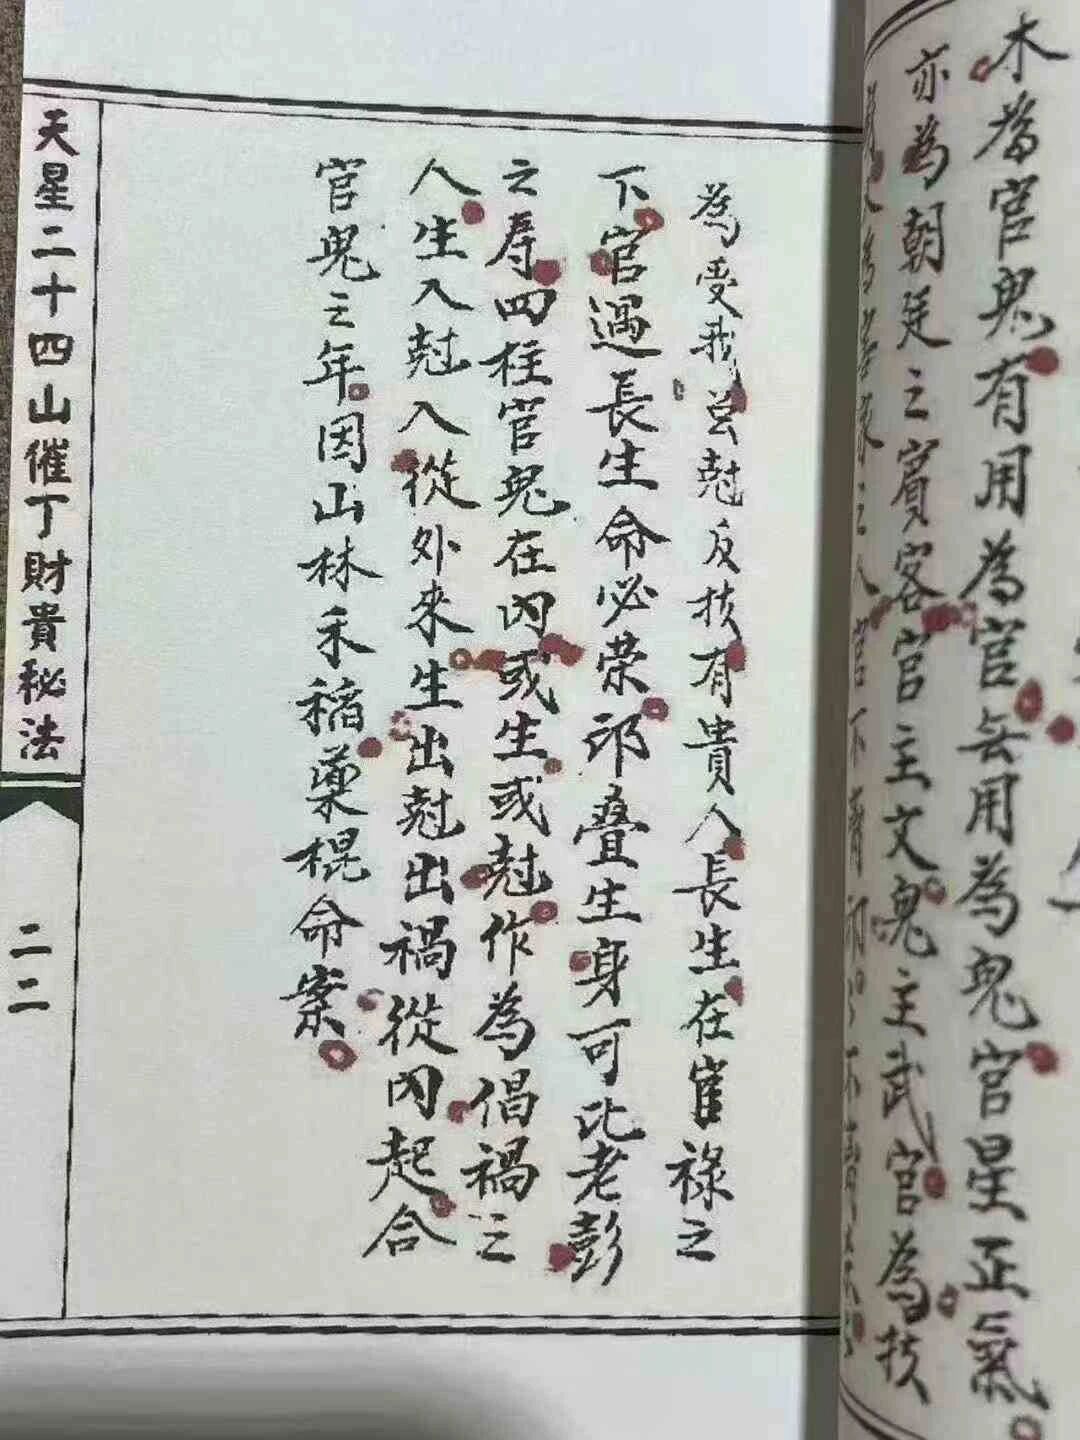 木為官鬼有用為官無用為鬼官星正氣
亦為朝廷之賓客官主文鬼主武官為技
為受我曾尅反技有貴人長生在官祿之
下官遇長生命必荣邛叠生身可比老彭
之壽四柱官鬼在內或生或尅作為倡禍之
人生入尅入從外來生出尅出禍從內起合
官鬼之年因山林禾稲藁棍命案
天星二十四山催丁財貴秘法
二二